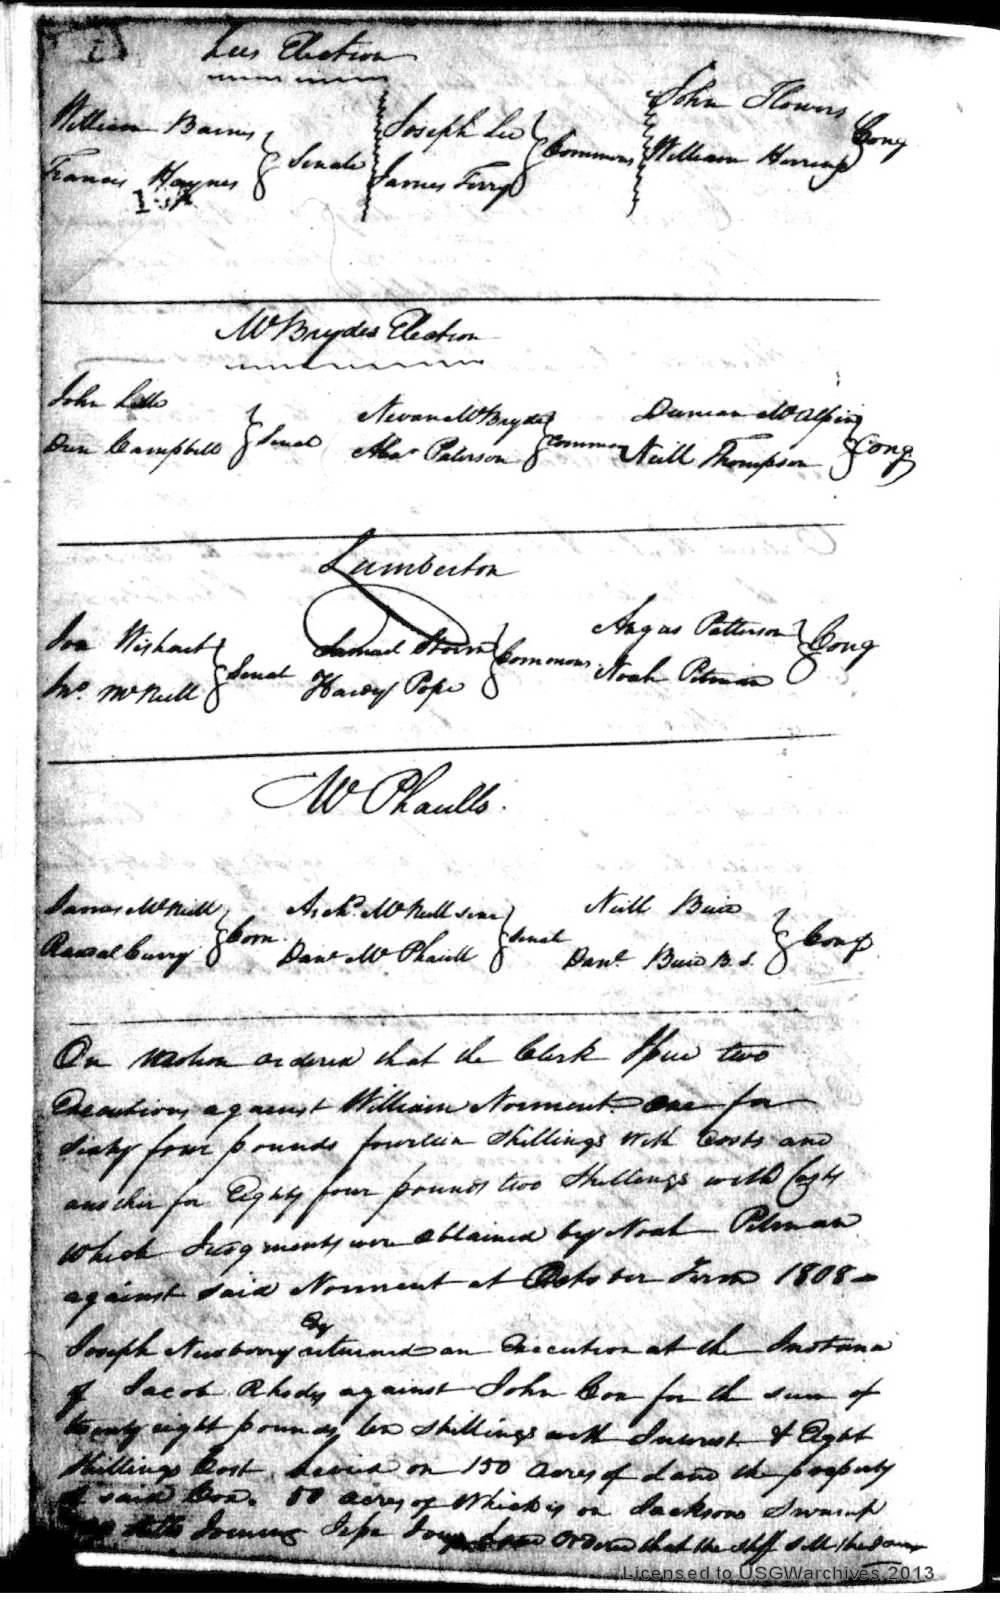 Lees Election
William Barnes
Francis Haynes
Senate
Joseph Lee
James Terry
Commons
John Flowers
William Herring
Cong
McBrydes Election
John Little
Dun Campbell
Senat
Nevan McBryde
Alexr Paterson
Common
Duncan McAlpin
Neill Thompson
Cong
Lumberton
Jon Wishart
Jno. McNeill
Senat
Samuel
Hardy Pope
Commons
Angus Patterson
Noah Pitman
Cong
McPhaulls.
James McNeill
Randal Curry
Com.
Archd. McNeill senr
Danl McPhaull
Senat
Neill Buie
Danl. Buie B. S.
Cong
On motion ordered that the Clerk Issue two
Executions against William Norment one for
sixty four pounds fourteen shillings with Costs and
another for Eighty four pounds two Shillings with Costs
which Judgments were obtained by Noah Pitman
against said Norment at October Term 1808 –
Joseph Newberry Esq returned an Execution at the Instance
of Jacob Rhodes against John Cox for the sum of
twenty eight pounds ten shillings with Interest & Eight
Shillings Cost, Levied on 150 acres of Land the property
of said Cox. 50 acres of Which is on Jacksons Swamp
Joining Land Ordered that the Shff sell the same
Licensed to USGWarchives 2013